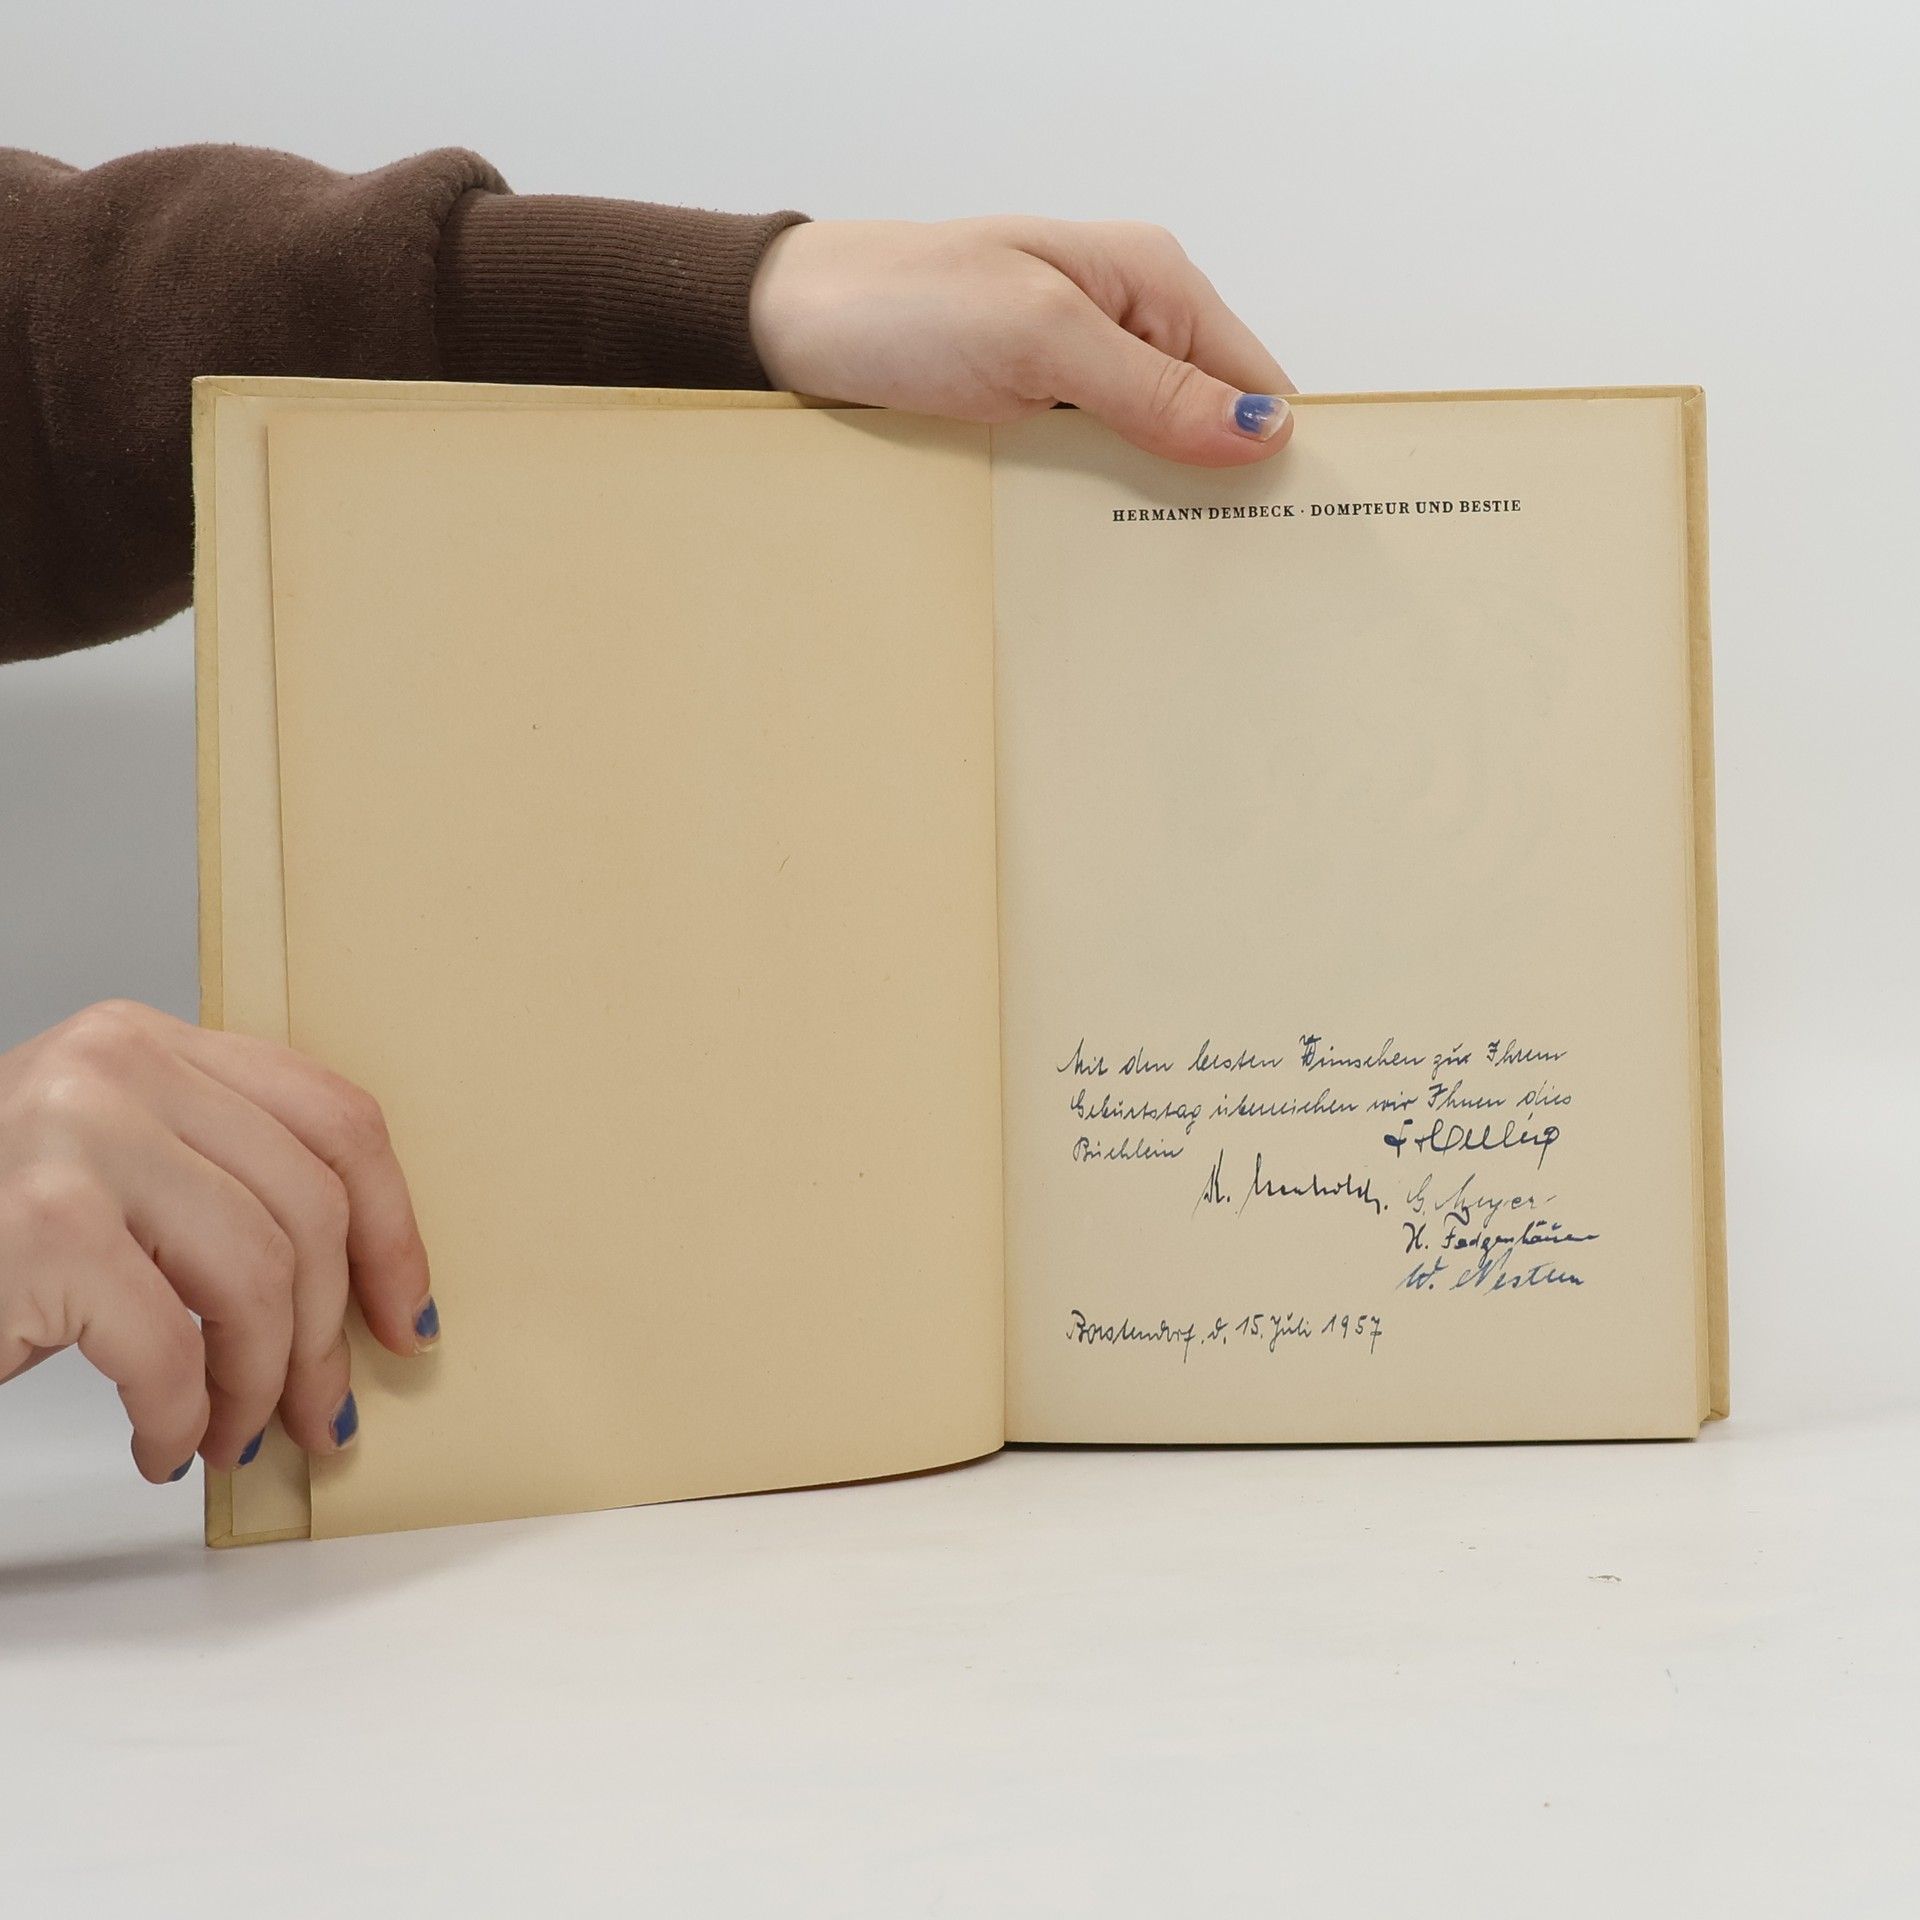 HERMANN DEMBECK · DOMPTEUR UND BESTIE
Mit den besten Wünschen zur Ihrem
Geburtstag überreichen wir Ihnen dies
Büchlein
K.
G. Meyer
H.
W.
Borstendorf, d. 15. Juli 1957